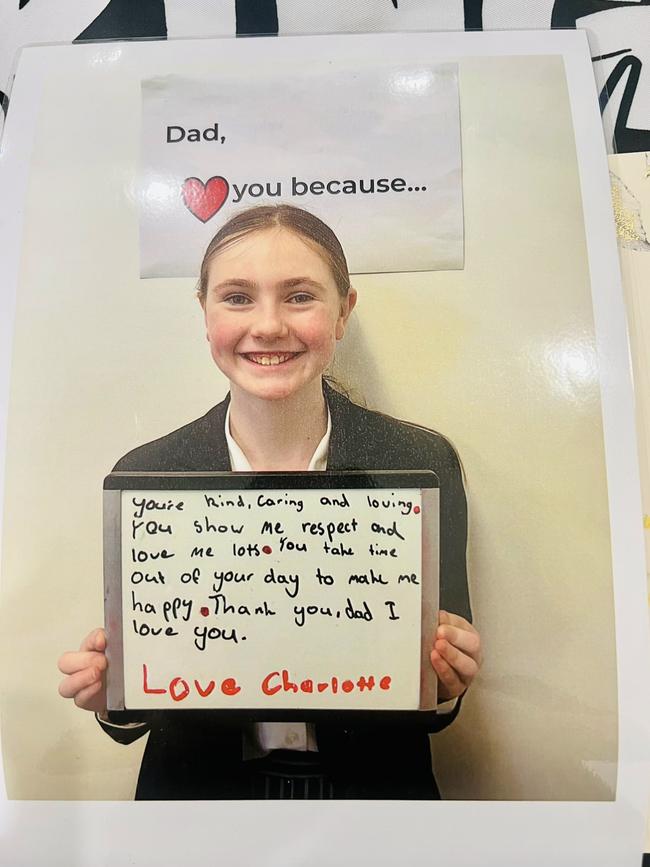 Dad,
you because...
you're kind, Caring and loving.
You show me respect and
love me lots. You take time
out of your day to make me
happy. Thank you, dad I
love you.
Love Charlotte